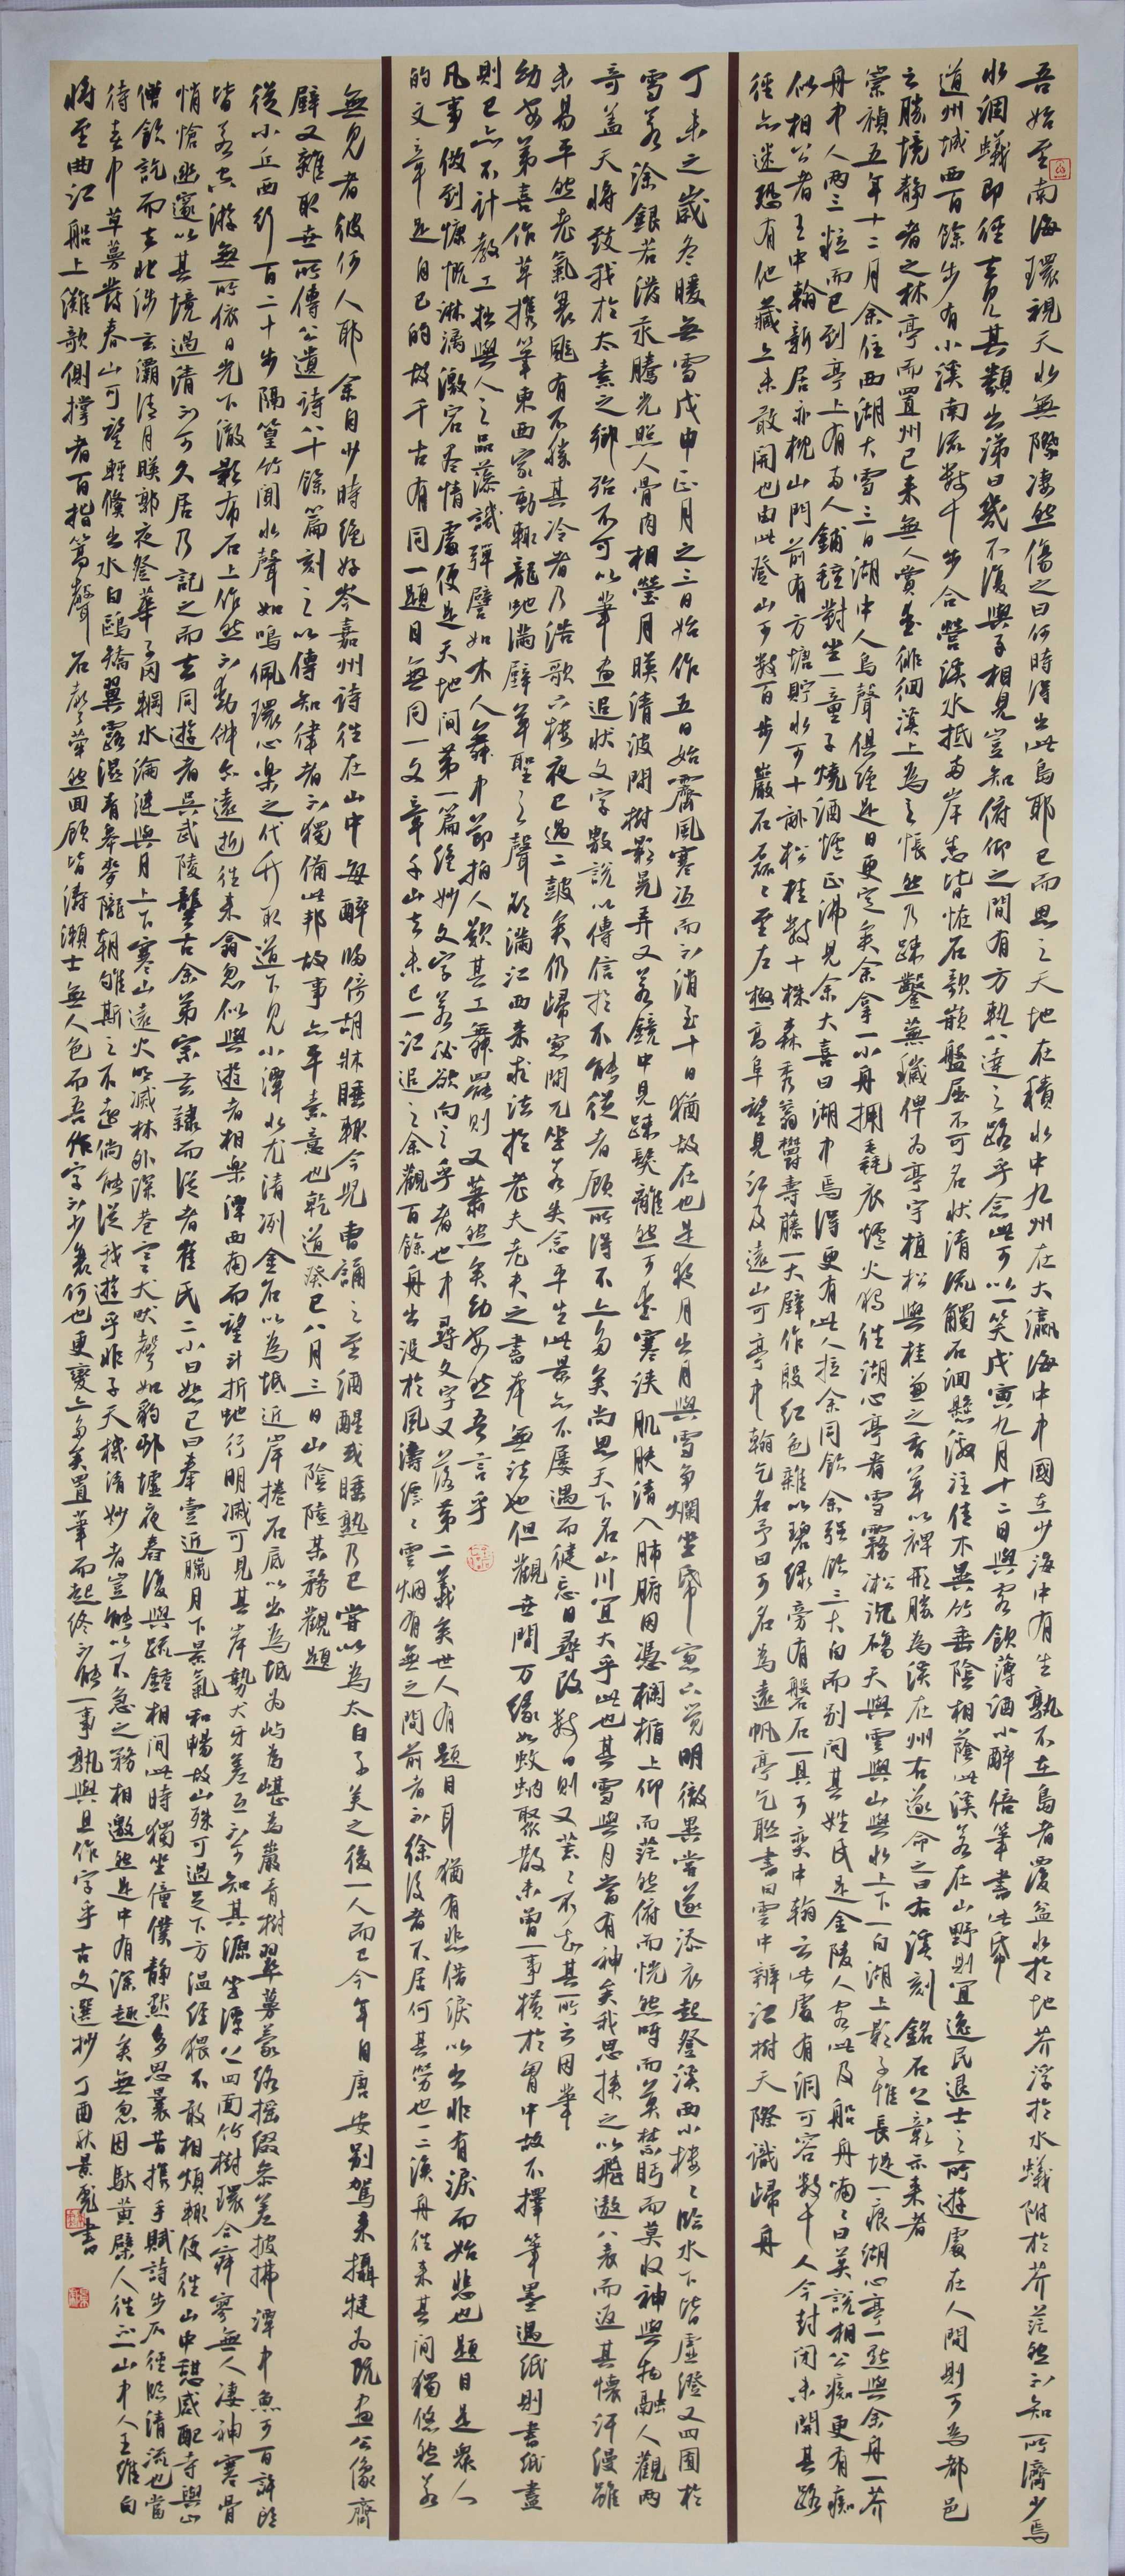 吾始至南海環視天水無際凄然傷之曰何時得出此島耶已而思之天地在積水中九州在大瀛海中中國在少海中有生孰不在島者覆盆水於地芥浮於水蟻附於芥茫然不知所濟少焉
水涸蟻即徑去見其類出涕曰幾不復與子相見豈知俯仰之間有方軌八達之路乎念此可以一笑戊寅九月十二日與客飲薄酒小醉信筆書此紙
道州城西百餘步有小溪南流數十步合營溪水抵兩岸悉皆怪石欹嵌盤屈不可名狀清流觸石洄懸激注佳木異竹垂陰相蔭此溪若在山野則宜逸民退士之所遊處在人間則可為都邑
之勝境靜者之林亭而置州已來無人賞愛徘徊溪上為之悵然乃疏鑿蕪穢俾為亭宇植松與桂兼之香草以裨形勝為溪在州右遂命之曰右溪刻銘石上彰示來者
崇禎五年十二月余住西湖大雪三日湖中人鳥聲俱絕是日更定矣余拏一小舟擁毳衣爐火獨往湖心亭看雪霧凇沆碭天與雲與山與水上下一白湖上影子惟長堤一痕湖心亭一點與余舟一芥
舟中人兩三粒而已到亭上有兩人鋪氈對坐一童子燒酒爐正沸見余大喜曰湖中焉得更有此人拉余同飲余強飲三大白而別問其姓氏是金陵人客此及船舟喃喃曰莫說相公痴更有痴
似相公者王中翰新居亦枕山門前有方塘貯水可十畝松桂數十株森秀蓊鬱壽藤一大壁作殷紅色雜以碧綠旁有磐石一具可奕中翰云此處有洞可容數十人今封閉未開其路
徑亦迷恐有他藏亦未敢開也由此登山可數百步巖石磊磊至左極高阜望見江及遠山可亭中翰乞名予曰可名為遠帆亭乞聯書曰雲中辨江樹天際識歸舟
丁未之歲冬暖無雪戊申正月之三日始作五日始霽風寒冱而不消至十日猶故在也是夜月出月與雪爭爛坐紙窗下覺明徹異常遂添衣起登溪西小樓樓臨水下皆虛澄又四圍於
雪若塗銀若潑汞騰光照人骨肉相瑩月映清波間樹影晃弄又若鏡中見疏髮離然可愛寒浹肌膚清入肺腑因憑欄楯上仰而茫然俯而恍然呀而莫禁眄而莫收神與物融人觀兩
奇蓋天將致我於太素之鄉殆不可以筆畫追狀文字敷說以傳信於不能從者顧所得不亦多矣尚思天下名山川宜大乎此也其雪與月當有神矣我思挾之以飛遨八表而返其懷汗漫雖
未易平然老氣衰颯有不勝其冷者乃浩歌下樓夜已過二鼓矣仍歸窗間兀坐若失念平生此景亦不屢遇而健忘日尋改數日則又荒荒不知其所云因筆
幼安弟喜作草攜筆東西家動輒龍蛇滿壁草聖之聲欲滿江西來求法於老夫老夫之書本無法也但觀世間万緣如蚊蚋聚散未嘗一事橫於胸中故不擇筆墨遇紙則書紙盡
則已亦不計較工拙與人之品藻譏彈譬如木人舞中節拍人歎其工舞罷則又蕭然矣幼安然吾言乎
凡事做到慷慨淋漓激宕盡情處便是天地間第一篇絕妙文字若必欲向之乎者也中尋文字又落第二義矣世人有題目耳猶有悲借淚以出非有淚而始悲也題目是眾人
的文章是自己的故千古有同一題目無同一文章千山去未已一江追之余觀百餘舟出沒於風濤縹緲雲烟有無之間前者不徐後者不居何其勞也一漁舟往來其間獨悠然若
無見者彼何人耶余自少時絕好岑嘉州詩往在山中每醉歸倚胡牀睡輒令兒曹誦之至酒醒或睡熟乃已嘗以為太白子美之後一人而已今年自唐安別駕來攝犍為既畫公像齋
壁又雜取世所傳公遺詩八十餘篇刻之以傳知律者不獨備此邦故事亦平素意也乾道癸巳八月三日山陰陸某務觀題
從小丘西行百二十步隔篁竹聞水聲如鳴佩環心樂之伐竹取道下見小潭水尤清冽金石以為坻近岸捲石底以出為坻為嶼為嵁為巖青樹翠蔓蒙絡搖綴參差披拂潭中魚可百許頭
皆若空游無所依日光下澈影布石上佁然不動俶爾遠逝往來翕忽似與遊者相樂潭西南而望斗折蛇行明滅可見其岸勢犬牙差互不可知其源坐潭上四面竹樹環合寂寥無人凄神寒骨
悄愴幽邃以其境過清不可久居乃記之而去同遊者吳武陵龔古余弟宗玄隸而從者崔氏二小曰恕己曰奉壹近臘月下景氣和暢故山殊可過足下方溫經猥不敢相煩輒便往山中憩感配寺與山
僧飯訖而去北涉玄灞清月映郭夜登華子岡輞水淪漣與月上下寒山遠火明滅林外深巷寒犬吠聲如豹村墟夜舂復與疏鐘相間此時獨坐僮僕靜默多思曩昔攜手賦詩步仄徑臨清流也當
待春中草蔓發春山可望輕鯈出水白鷗矯翼露濕青皋麥隴朝雊斯之不遠倘能從我遊乎非子天機清妙者豈能以不急之務相邀然是中有深趣矣無忽因馱黃檗人往不一山中人王維白
將至曲江船上灘欹側撐者百指篙聲石聲犖然四顧皆濤瀨士無人色而吾作字不少衰何也更變亦多矣置筆而起終不能一事孰與且作字乎古文選抄丁酉秋景彪書